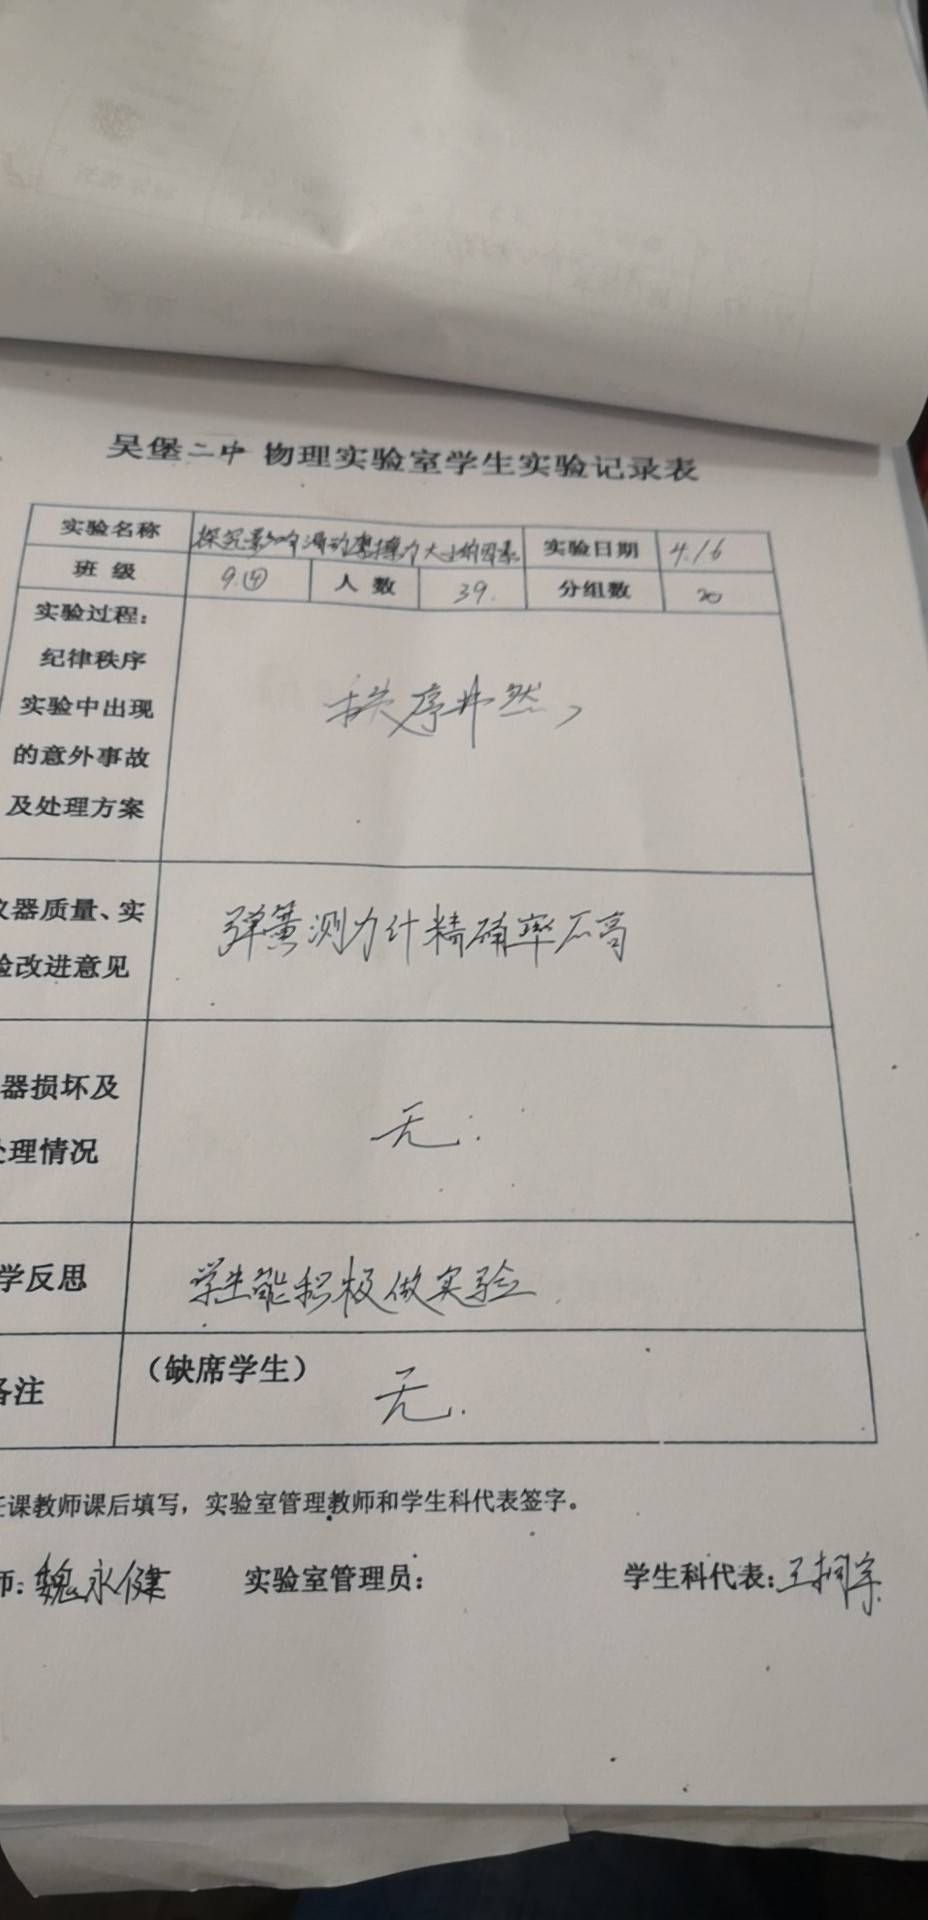 吴堡二中 物理实验室学生实验记录表
实验名称 探究影响滑动摩擦力大小的因素 实验日期 4.16
班 级 9.④ 人 数 39. 分组数 20
实验过程:
纪律秩序
实验中出现
的意外事故
及处理方案
秩序井然,
器质量、实
改进意见
弹簧测力计精确率不高
器损坏及
理情况
无.
学反思
学生能积极做实验
注
(缺席学生)
无.
课教师课后填写，实验室管理教师和学生科代表签字。
师: 魏永健 实验室管理员: 学生科代表: 王